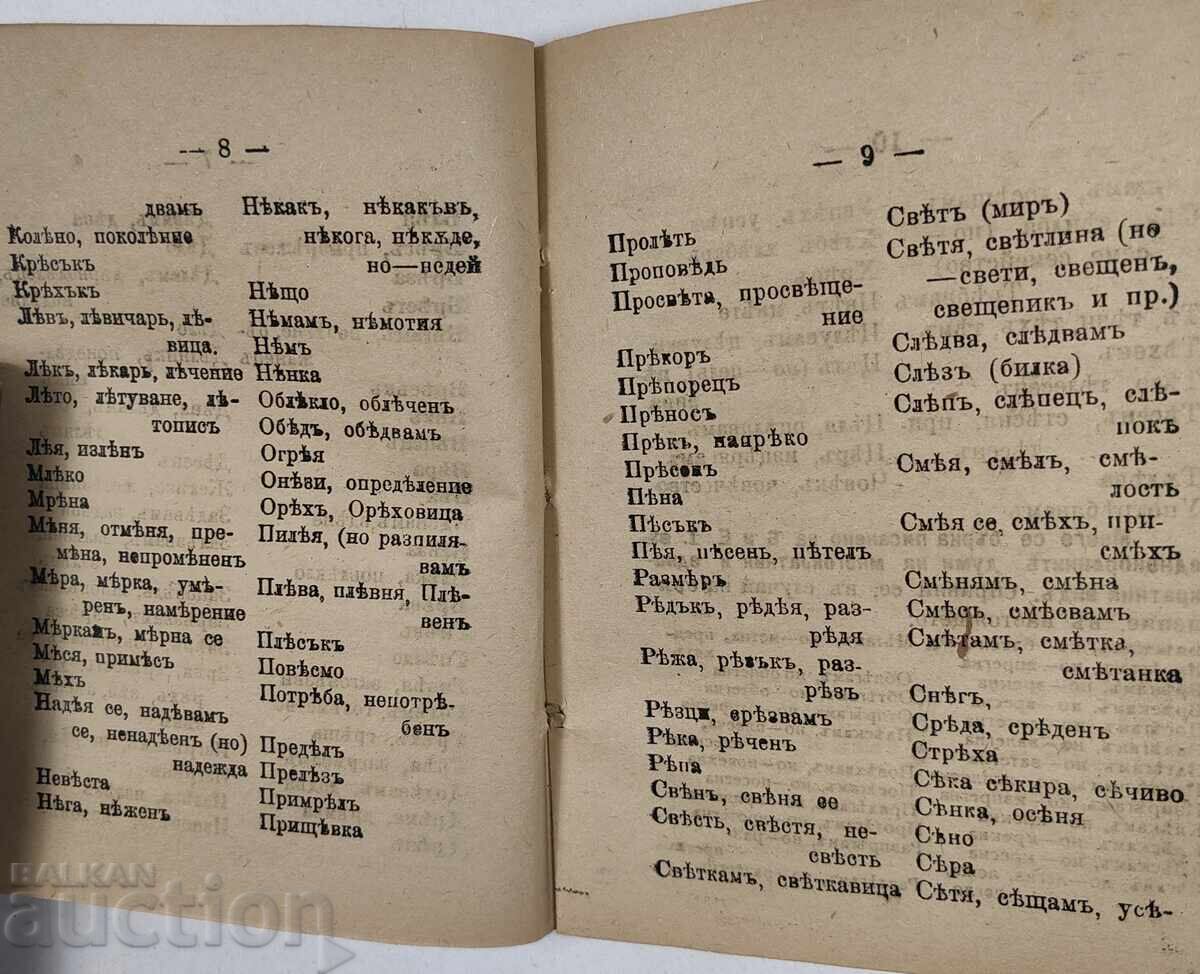 — 8 —
двамъ
Колѣно, поколѣние
Крѣсъкъ
Крѣхъкъ
Лѣвъ, лѣвичарь, лѣ-
вица.
Лѣкъ, лѣкарь, лѣчение
Лѣто, лѣтуване, лѣ-
топис
Лѣя, излѣнъ
Млѣко
Мрѣна
Мѣня, отмѣня, пре-
мѣна, непромѣненъ
Мѣра, мѣрка, умѣ-
ренъ, намѣрение
Мѣркамъ, мѣрна се
Мѣся, примѣсъ
Мѣхъ
Надѣя се, надѣвамъ
се, ненадѣенъ (но)
надежда
Невѣста
Нѣга, нѣженъ
Нѣкакъ, нѣкакъвъ,
нѣкога, нѣкѫде,
но—недей
Нѣщо
Нѣмамъ, нѣмотия
Нѣмъ
Нѣнка
Облѣкло, облѣченъ
Обѣдъ, обѣдвамъ
Огрѣя
Онѣзи, опредѣление
Орѣхъ, Орѣховица
Пилѣя, (но разпиля-
вамъ
Плѣва, плѣвня, Плѣ-
венъ
Плѣсъкъ
Повѣсмо
Потрѣба, непотрѣ-
бенъ
Предѣлъ
Прелѣзъ
Примрѣлъ
Прищѣвка
— 9 —
Пролѣть
Проповѣдь
Просвѣта, просвѣще-
ние
Прѣкоръ
Прѣпорецъ
Прѣносъ
Прѣкъ, напрѣко
Прѣсенъ
Пѣна
Пѣсъкъ
Пѣя, пѣсень, пѣтелъ
Размѣръ
Рѣдъкъ, рѣдѣя, раз-
рѣдя
Рѣжа, рѣзъкъ, раз-
рѣзъ
Рѣзци, врѣзвамъ
Рѣка, рѣченъ
Рѣпа
Свѣнъ, свѣня се
Свѣсть, свѣстя, не-
свѣсть
Свѣткамъ, свѣткавица
Свѣтъ (миръ)
Свѣтя, свѣтлина (но
—свети, свещенъ,
свещепикъ и пр.)
Слѣдва, слѣдвамъ
Слѣзъ (билка)
Слѣпъ, слѣпецъ, слѣ-
покъ
Смѣя, смѣлъ, смѣ-
лость
Смѣя се, смѣхъ, при-
смѣхъ
Смѣнямъ, смѣна
Смѣсь, смѣсвамъ
Смѣтамъ, смѣтка,
смѣтанка
Снѣгъ,
Срѣда, срѣденъ
Стрѣха
Сѣка сѣкира, сѣчиво
Сѣнка, осѣня
Сѣно
Сѣра
Сѣтя, сѣщамъ, усѣ-
BALKAN
auction